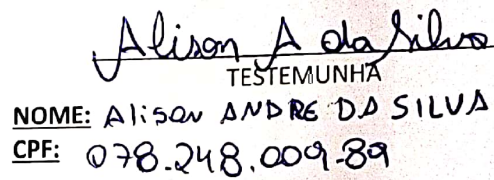 Alison A da Silva
TESTEMUNHA
NOME: Alison ANDRE DA SILVA
CPF: 078.248.009-89